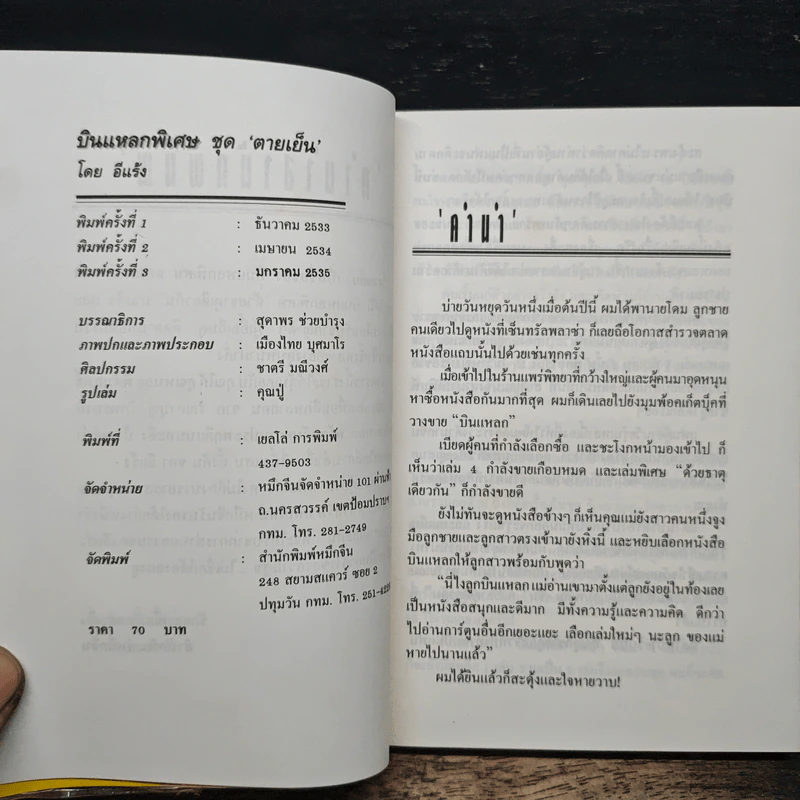 บินแหลกพิเศษ ชุด ‘ตายเย็น’
โดย อีแร้ง
พิมพ์ครั้งที่ 1 : ธันวาคม 2533
พิมพ์ครั้งที่ 2 : เมษายน 2534
พิมพ์ครั้งที่ 3 : มกราคม 2535
บรรณาธิการ : สุดาพร ช่วยบำรุง
ภาพปกและภาพประกอบ : เมืองไทย บุศมาโร
ศิลปกรรม : ชาตรี มณีวงศ์
รูปเล่ม : คุณปู่
พิมพ์ที่ : เยลโล่ การพิมพ์
437-9503
จัดจำหน่าย : หมึกจีนจัดจำหน่าย 101 ผ่านฟ้า
ถ.นครสวรรค์ เขตป้อมปราบฯ
กทม. โทร. 281-2749
จัดพิมพ์ : สำนักพิมพ์หมึกจีน
248 สยามสแควร์ ซอย 2
ปทุมวัน กทม. โทร.
ราคา 70 บาท
'คำนำ'
บ่ายวันหยุดวันหนึ่งเมื่อต้นปีนี้ ผมได้พานายโดม ลูกชาย
คนเดียวไปดูหนังที่เซ็นทรัลพลาซ่า ก็เลยถือโอกาสสำรวจตลาด
หนังสือแถบนั้นไปด้วยเช่นทุกครั้ง
เมื่อเข้าไปในร้านแพร่พิทยาที่กว้างใหญ่และผู้คนมาอุดหนุน
หาซื้อหนังสือกันมากที่สุด ผมก็เดินเลยไปยังมุมพ้อคเก็ตบุ๊คที่
วางขาย “บินแหลก”
เบียดผู้คนที่กำลังเลือกซื้อ และชะโงกหน้ามองเข้าไป ก็
เห็นว่าเล่ม 4 กำลังขายเกือบหมด และเล่มพิเศษ “ด้วยธาตุ
เดียวกัน” ก็กำลังขายดี
ยังไม่ทันจะดูหนังสือข้างๆ ก็เห็นคุณแม่ยังสาวคนหนึ่งจูง
มือลูกชายและลูกสาวตรงเข้ามายังหิ้งนี้ และหยิบเลือกหนังสือ
บินแหลกให้ลูกสาวพร้อมกับพูดว่า
“นี่ไงลูกบินแหลก แม่อ่านเขามาตั้งแต่ลูกยังอยู่ในท้องเลย
เป็นหนังสือสนุกและดีมาก มีทั้งความรู้และความคิด ดีกว่า
ไปอ่านการ์ตูนอื่นอีกเยอะแยะ เลือกเล่มใหม่ๆ นะลูก ของแม่
หายไปนานแล้ว”
ผมได้ยินแล้วก็สะดุ้งและใจหายวาบ!